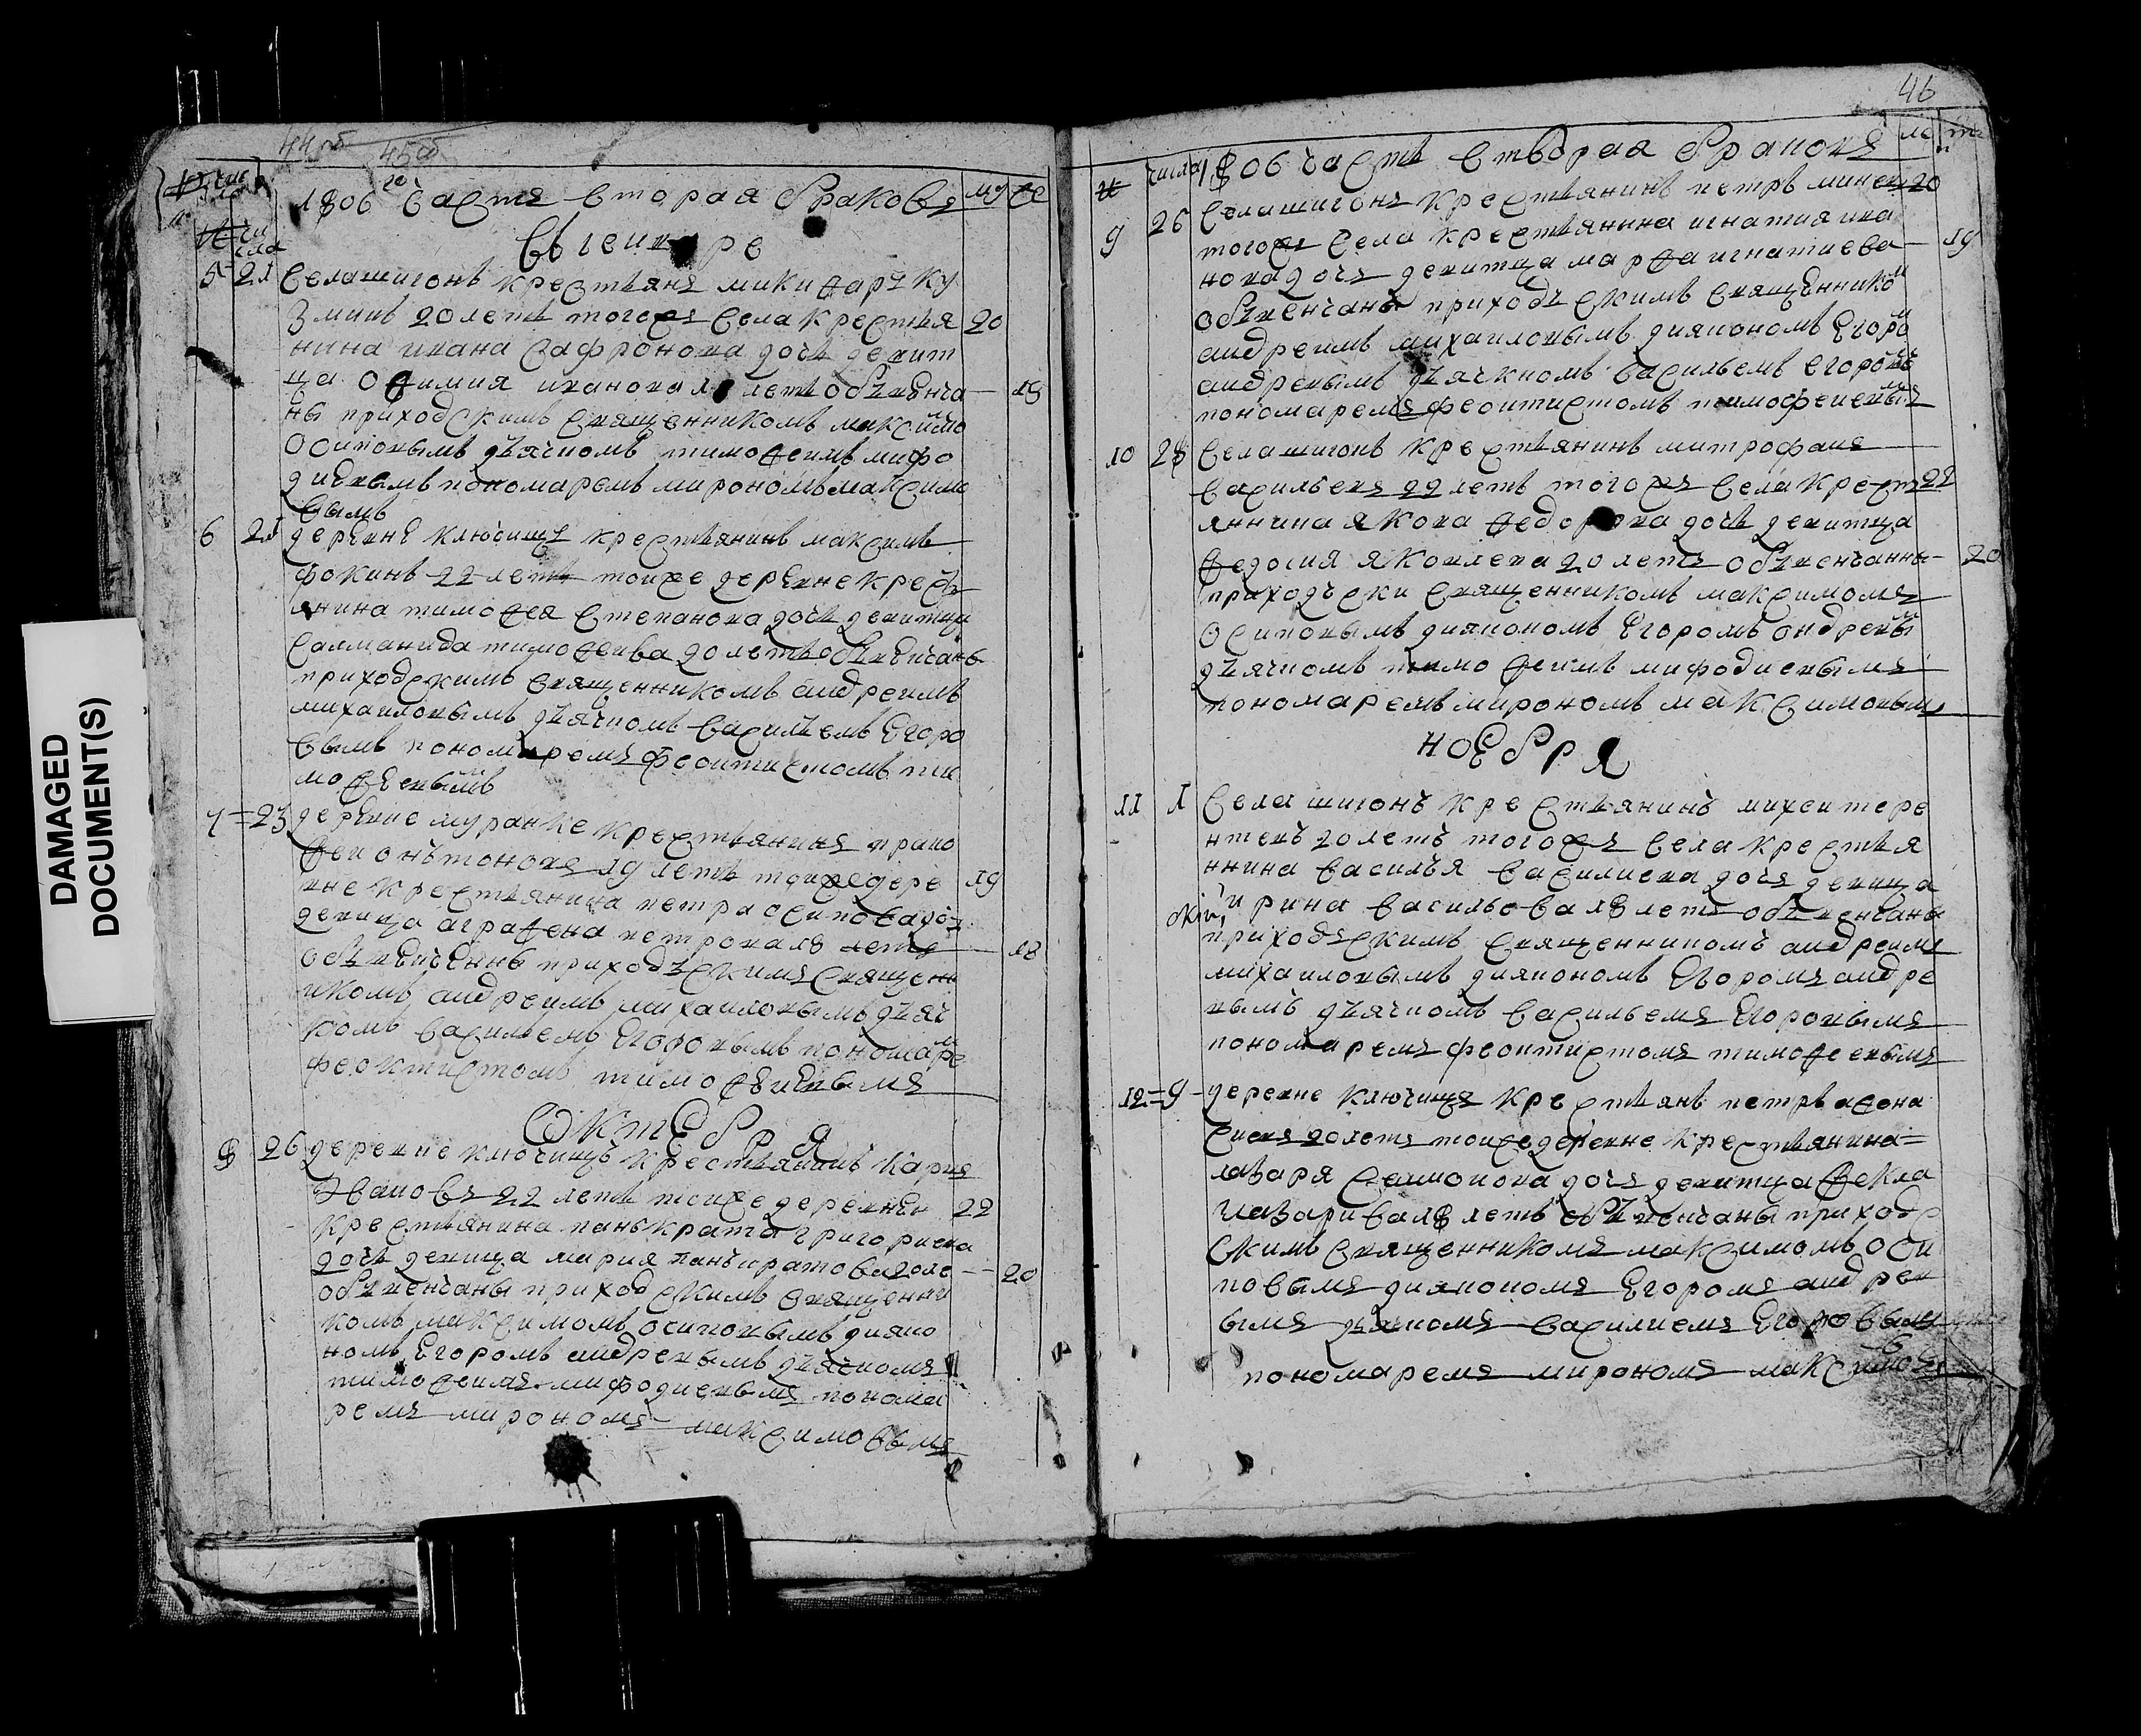 DAMAGED
DOCUMENT(S)
44об
45об
1806 го частя вторая браковъ
му же
чи
сла
5 21 села шигонъ крестьянъ микифаръ ку
зминъ 20 летъ тогожъ села крестья 20
нина ивана сафронова дочь девит
ца офимия иванова летъ обвенча 19
ны приходскимъ священникомъ максимо
осиповымъ дьячкомъ тимофеимъ мифо
диевымъ пономаремъ мирономъ максимо
вымъ
6 21 деревне ключищъ крестьянинъ максимъ
фокинъ 22 летъ тоиже деревне крест
янина тимофея степанова дочь девитца
салманида тимофеива 20 летъ обвенчаны
приходскимъ священникомъ андреимъ
михаиловымъ дьячкомъ василъемъ Егоро
вымъ пономаремъ феоктистомъ ти
мофеевымъ
7 23 деревне муранке крестьянинъ
19 летъ тоиже дере 19
вне крестьянина петра осипова доч
девица аграфена петрова 18 летъ 18
обвенчены приходъскимъ священ
икомъ андреимъ михаиловымъ дьяч
комъ василъемъ Егоровымъ пономаре
феоктистомъ тимофеивымъ
Октебря
8 26 деревне ключищъ крестьянинъ карпъ
Ивановъ 22 летъ тоиже деревнеи 22
крестьянина панъкрата григориева
дочь девица мария панъкратова 20 ле 20
обвенчаны приходскимъ священни
комъ максимомъ осиповымъ диако
номъ Егоромъ андревымъ дьячкомъ
тимофеимъ мифодиевымъ понома
ремъ мирономъ максимовымъ
46
числа 1806 часть вторая браковъ
9 26 села шигонъ крестьянинъ петръ минеи 20
тогожъ села крестьянина игнатия ива
нова дочь девитца марфа игнатиева 19
обвенчаны приходъскимъ священнико
андреимъ михаиловымъ дияконом Егоро
андревымъ дьячкомъ василъемъ Егоровы
пономаремъ феоктистомъ тимофеивым
10 28 села шигонъ крестьянинъ митрофанъ
василъевъ 22 летъ тогожъ села крест 22
яннина якова федорова дочь девитца
федосия яковлева 20 летъ обвенчанны 20
приходъски священникомъ максимомъ
осиповымъ дияконом Егоромъ ондревы
дьячкомъ тимофеимъ мифодиевымъ
пономаремъ мирономъ максимовым
ноебря
11 1 села шигонъ крестьянинъ михеи тере
нтевъ 20 летъ тогожъ села крестья
ннина василъя василиева дочь девица
ирина васильова 18 летъ обвенчаны
приходъскимъ священникомъ андреимъ
михаиловымъ дияконом Егоромъ андре
вымъ дьячкомъ василъемъ Егоровымъ
пономаремъ феоктистомъ тимофеевымъ
12 9 деревне ключищъ крестьянъ петръ афона
сиевъ 20 летъ тоиже деревне крестьянина
лазаря самионова дочь девитца фекла
лазарива 18 летъ обвенчаны приход
скимъ священникомъ максимомъ оси
повымъ дияконом Егоромъ андрев
вымъ дьячкомъ василиемъ Егоровым
пономаремъ мирономъ максимов